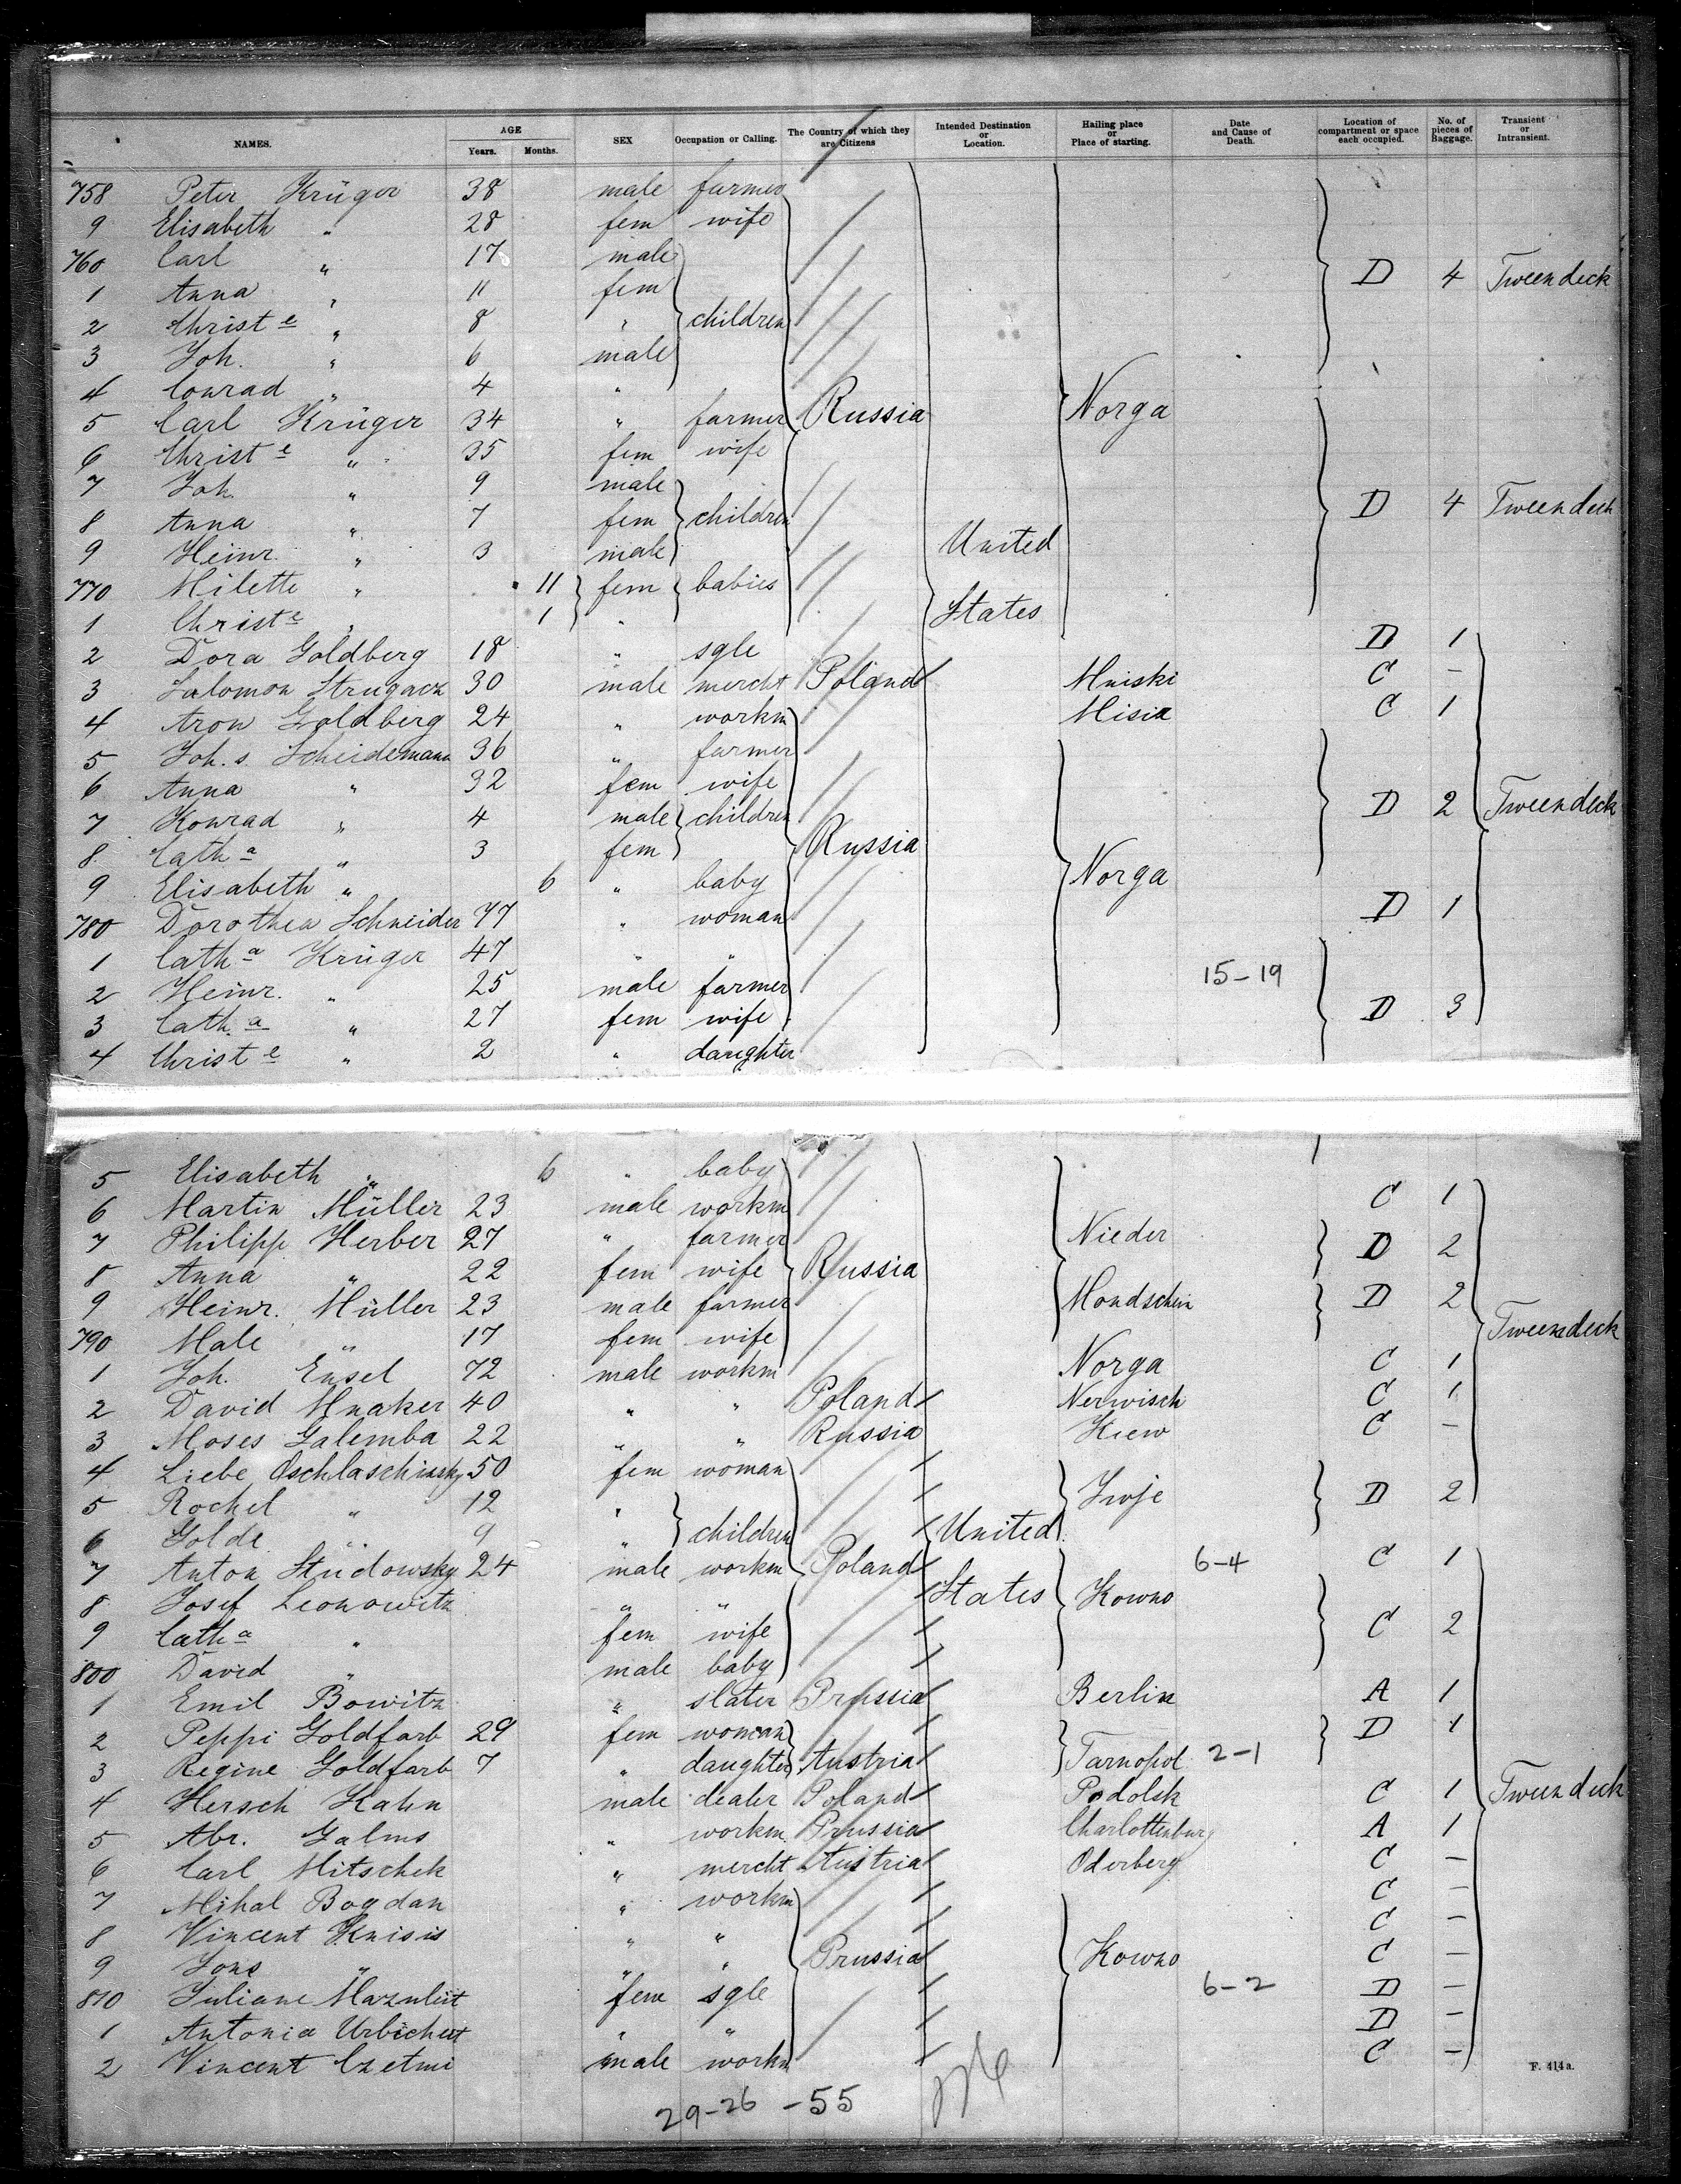 NAMES. AGE Years. Months. SEX Occupation or Calling. The Country of which they are Citizens Intended Destination or Location. Hailing place or Place of starting. Date and Cause of Death. Location of compartment or space each occupied. No. of pieces of Baggage. Transient or Intransient.
758 Peter Krüger 38 male farmer
9 Elisabeth " 28 fem wife
760 Carl " 17 male
1 Anna " 11 fem D 4 Tweendeck
2 Christe " 8 " children
3 Joh. " 6 male
4 Conrad " 4 "
5 Carl Krüger 34 " farmer Russia Norga
6 Christe " 35 fem wife
7 Joh. " 9 male
8 Anna " 7 fem children D 4 Tweendeck
9 Heinr. " 3 male United
770 Milette " 11 fem babies
1 Christe " 1 " States
2 Dora Goldberg 18 " sgle D 1
3 Salomon Strugacz 30 male mercht Poland Mniski C –
4 Aron Goldberg 24 " workm Misia C 1
5 Joh.s Scheidemann 36 " farmer
6 Anna " 32 fem wife
7 Konrad " 4 male children D 2 Tweendeck
8 Catha " 3 fem Russia
9 Elisabeth " 6 " baby Norga
780 Dorothea Schneider 77 " woman D 1
1 Catha Krüger 47 " "
2 Heinr. " 25 male farmer 15-19
3 Catha " 27 fem wife D 3
4 Christe " 2 " daughter
5 Elisabeth " 6 " baby
6 Martin Müller 23 male workm C 1
7 Philipp Herber 27 " farmer Nieder D 2
8 Anna " 22 fem wife Russia
9 Heinr. Müller 23 male farmer Mondschein D 2
790 Male " 17 fem wife Tweendeck
1 Joh. Ensel 72 male workm Norga C 1
2 David Mnaker 40 " " Poland Nerwisch C 1
3 Moses Galemba 22 " " Russia Kiew C –
4 Liebe Oschlaschinsky 50 fem woman
5 Rochel " 12 " Iwje D 2
6 Golde " 9 " children United
7 Anton Studowsky 24 male workm Poland 6-4 C 1
8 Josef Leonowitz " " States Kowno
9 Catha " fem wife C 2
800 David " male baby
1 Emil Bowitz " slater Prussia Berlin A 1
2 Peppi Goldfarb 29 fem woman D 1
3 Regine Goldfarb 7 " daughter Austria Tarnopol 2-1
4 Hersch Kahn male dealer Poland Podolsk C 1 Tweendeck
5 Abr. Galms " workm Prussia Charlottenburg A 1
6 Carl Mitschek " mercht Austria Oderberg C –
7 Mihal Bogdan " workm C –
8 Vincent Knisis " " C –
9 Jons " " " Prussia Kowno C –
810 Juliane fem sgle 6-2 D –
1 Antonia " " D –
2 Vincent Czetmi male workm C –
F. 414 a.
29-26 -55